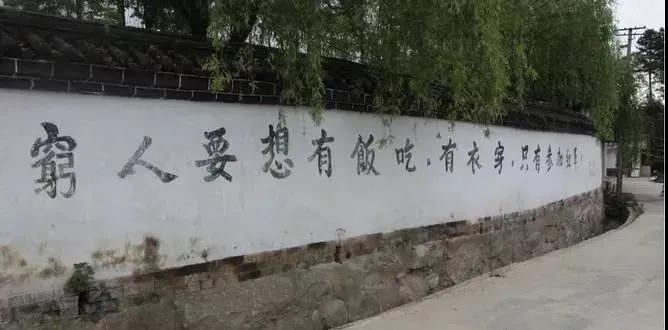 窮人要想有飯吃，有衣穿，只有参加红军！